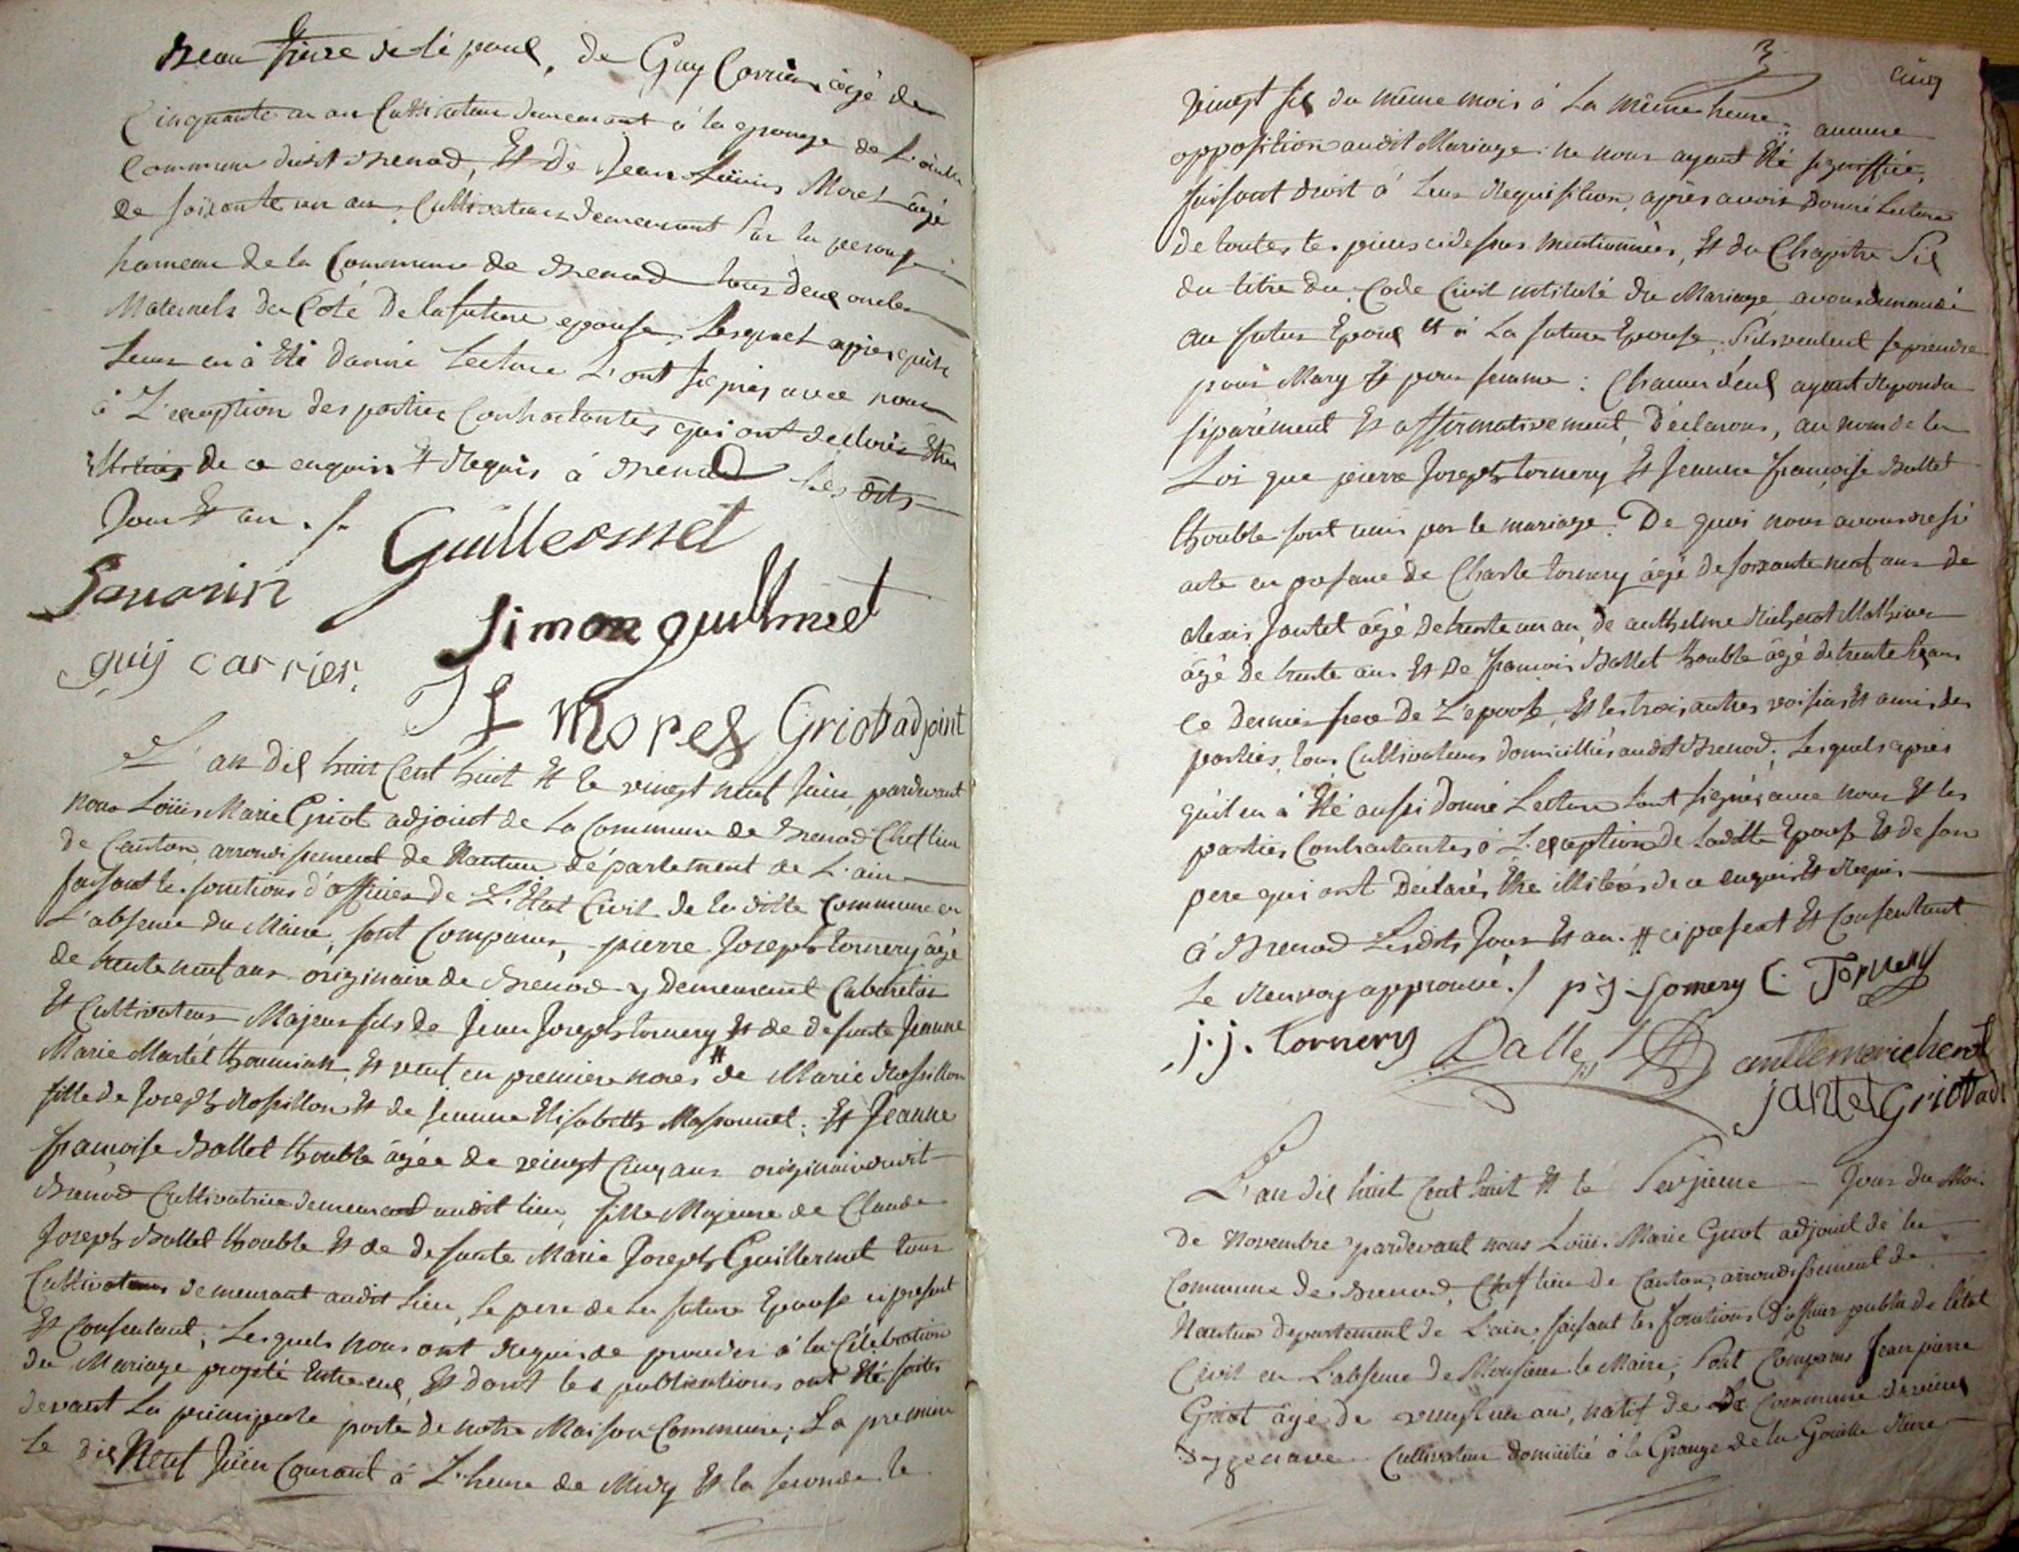 Beau frere de l'époux, de Guy Carrier âgé de
Cinquante un an Cultivateur demeurant à la grange de L'
Commune dudit Brenod, Et De Jean Louis Morel âgé
de soixante un an, Cultivateur demeurant Sur la
hameau de la Commune de Brenod tous deux oncles
Maternels du Coté De la future epouse, Lesquels après qu'il
Leur en à Eté donné Lecture L'ont Signés avec nous
à L'exception des parties Contractantes qui ont declarés Etre
illitérés de ce enquis Et Requis à Brenod les dits
Jour Et an ./.
Guillermet
Savarin
Simon guillmet
guy carrier.
J L Morel
Griot adjoint
L'an dix huit Cent huit Et le vingt neuf Juin, pardevant
nous Loüis Marie Griot adjoint de La Commune de Brenod Chef lieu
de Canton, arrondissement de Nantua département de L'ain
faisant les fonctions d'officier de L'Etat Civil de laditte Commune en
L'absence du Maire, sont Comparus, pierre Joseph tornery âgé
de trente neuf ans originaire de Brenod y demeurant Cabaretier
Et Cultivateur Majeur fils de Jean Joseph tornery Et de defunte Jeanne
Marie Martel thoumian Et veuf en premiere noces # de Marie Rossillon
fille de Joseph Rossillon Et de Jeanne Elisabeth Massonnet; Et Jeanne
françoise Ballet thouble âgée de veingt Cinq ans originaire dudit
Brenod Cultivatrice demeurant audit lieu, fille Majeure de Claude
Joseph Ballet thouble Et de defunte Marie Joseph Guillermet tous
Cultivateurs demeurant audit Lieu, le pere de la future Epouse ci present
Et Consentant; Lesquels nous ont Requis de proceder à la Célebration
du Mariage projeté Entre eux, Et dont les publications ont Eté faites
devant La principale porte de notre Maison Commune; La premiere
le dix Neuf Juin Courant à L'heure de Midy Et la seconde le
3
Cinq
veingt six du même mois à La même heure. aucune
opposition audit Mariage ne nous ayant Eté signiffiée,
faisant droit à leur Requisition, après avoir donné Lecture
de toutes les pieces ci dessus mentionnées, Et du Chapitre Six
du titre du Code Civil intitulé du Mariage avons demandé
au futur Epoux et à La future Epouse, S'ils veulent se prendre
pour Mary Et pour femme: Chacun d'eux ayant Repondu
séparément Et affirmativement, Déclarons, au nom de la
Loi que pierre Joseph tornery Et Jeanne françoise Ballet
thouble sont unis par le mariage. De quoi nous avons dressé
acte en presence de Charle tornery âgé de soixante neuf ans de
alexis Jantet âgé de trente un an, de anthelme Richerot Mathieu
âgé de trente ans Et de francois Ballet thouble âgé de trente Six ans
Ce dernier frere de L'epouse, Et les trois autres voisins Et amis des
parties, tous Cultivateurs domiciliés audit Brenod; Lesquels après
qu'il en à Eté aussi donné Lecture L'ont signés avec nous Et les
parties Contractantes à L'exception de Laditte Epouse Et de son
pere qui ont Déclarés Etre illitérés de ce enquis Et Requis
à Brenod Lesdits Jour Et an. # ci present Et Consentant
Le Renvoy approuvé ./ p j. tornery C. Tornery
j.j. tornery Ballet antlemericherot
jantet Griot adj
L'an dix huit Cent huit Et le Seizieme Jour du Moi
De Novembre pardevant nous Loüi. Marie Griot adjoint de la
Commune de Brenod, Chef lieu de Canton, arrondissement de
Nantua departement de L'ain faisant les fonctions d'officier public de l'état
Civil en L'absence de Monsieur le Maire; Sont Comparus Jean pierre
Griot âgé de vingt un an, natif de la Commune de vieux
d'yzenave Cultivateur domicilié à la Grange de la Gouille Noire